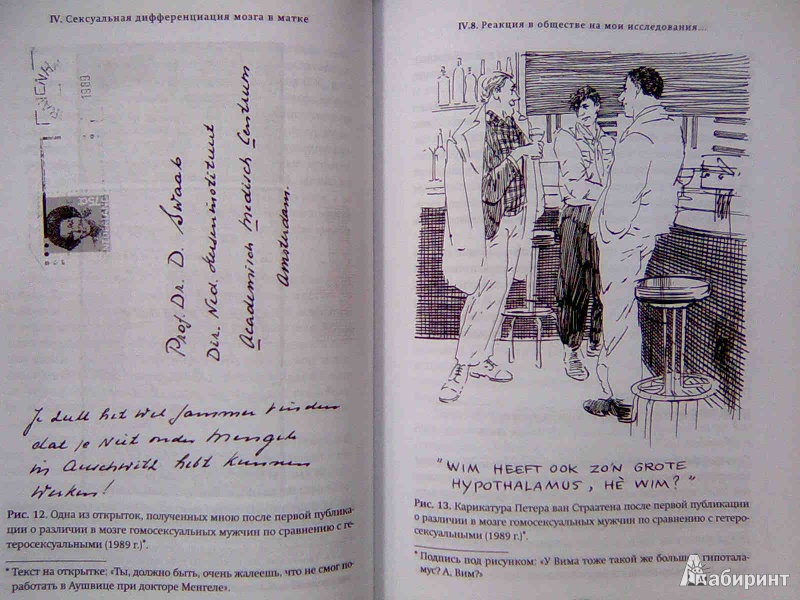 IV. Сексуальная дифференциация мозга в матке
1989
75c
Prof. Dr. D. Swaab
Dir. Ned. Herseninstituut
Academisch Medisch Centrum
Amsterdam.
Je zult het wel jammer vinden
dat je niet onder Mengele
in Auschwitz hebt kunnen
werken!
Рис. 12. Одна из открыток, полученных мною после первой публика-
ции о различии в мозге гомосексуальных мужчин по сравнению с ге-
теросексуальными (1989 г.)*.
* Текст на открытке: «Ты, должно быть, очень жалеешь, что не смог по-
работать в Аушвице при докторе Менгеле».
IV.8. Реакция в обществе на мои исследования...
"WIM HEEFT OOK ZO'N GROTE
HYPOTHALAMUS, HÈ WIM?"
Рис. 13. Карикатура Петера ван Страатена после первой публикации
о различии в мозге гомосексуальных мужчин по сравнению с гетеро-
сексуальными (1989 г.)*.
* Подпись под рисунком: «У Вима тоже такой же большой гипотала-
мус? А, Вим?»
Лабиринт